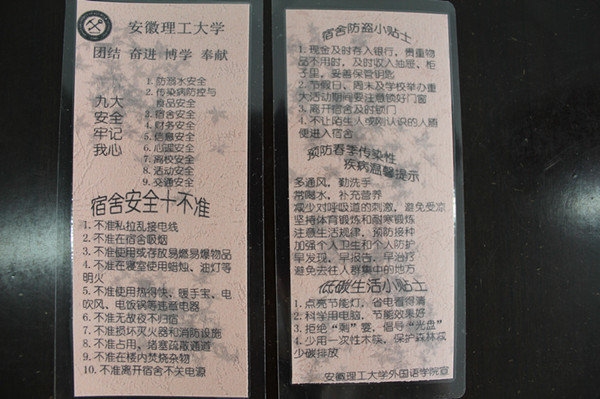 安徽理工大学
团结 奋进 博学 奉献
九大
安全
牢记
我心
1. 防溺水安全
2. 传染病防控与
食品安全
3. 宿舍安全
4. 财务安全
5. 信息安全
6. 心理安全
7. 离校安全
8. 活动安全
9. 交通安全
宿舍安全十不准
1. 不准私拉乱接电线
2. 不准在宿舍吸烟
3. 不准使用或存放易燃易爆物品
4. 不准在寝室使用蜡烛、油灯等
明火
5. 不准使用热得快、暖手宝、电
吹风、电饭锅等违章电器
6. 不准无故夜不归宿
7. 不准损坏灭火器和消防设施
8. 不准占用，堵塞疏散通道
9. 不准在楼内焚烧杂物
10. 不准离开宿舍不关电源
宿舍防盗小贴士
1. 现金及时存入银行，贵重物
品不用时，及时收入抽屉、柜
子里，妥善保管钥匙
2. 节假日、周末及学校举办重
大活动期间要注意锁好门窗
3. 离开宿舍及时锁门
4. 不让陌生人或刚认识的人随
便进入宿舍
预防春季传染性
疾病温馨提示
多通风，勤洗手
常喝水，补充营养
减少对呼吸道的刺激，避免受凉
坚持体育锻炼和耐寒锻炼
注意生活规律，预防接种
加强个人卫生和个人防护
早发现、早报告、早治疗
避免去往人群集中的地方
低碳生活小贴士
1. 点亮节能灯，省电看得清
2. 科学用电脑，节能效果好
3. 拒绝“剩”宴，倡导“光盘”
4. 少用一次性木筷，保护森林减
少碳排放
安徽理工大学外国语学院宣